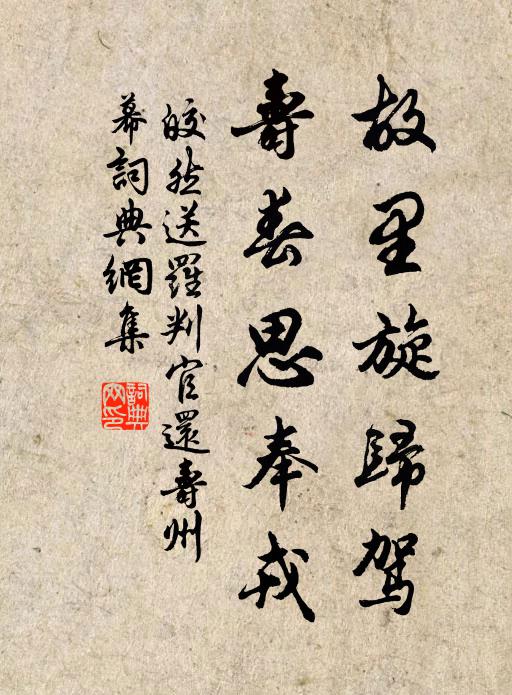 故里旋歸駕
壽春思奉戎
皎然送羅判官還壽州
幕詞典網集
詞典
网印